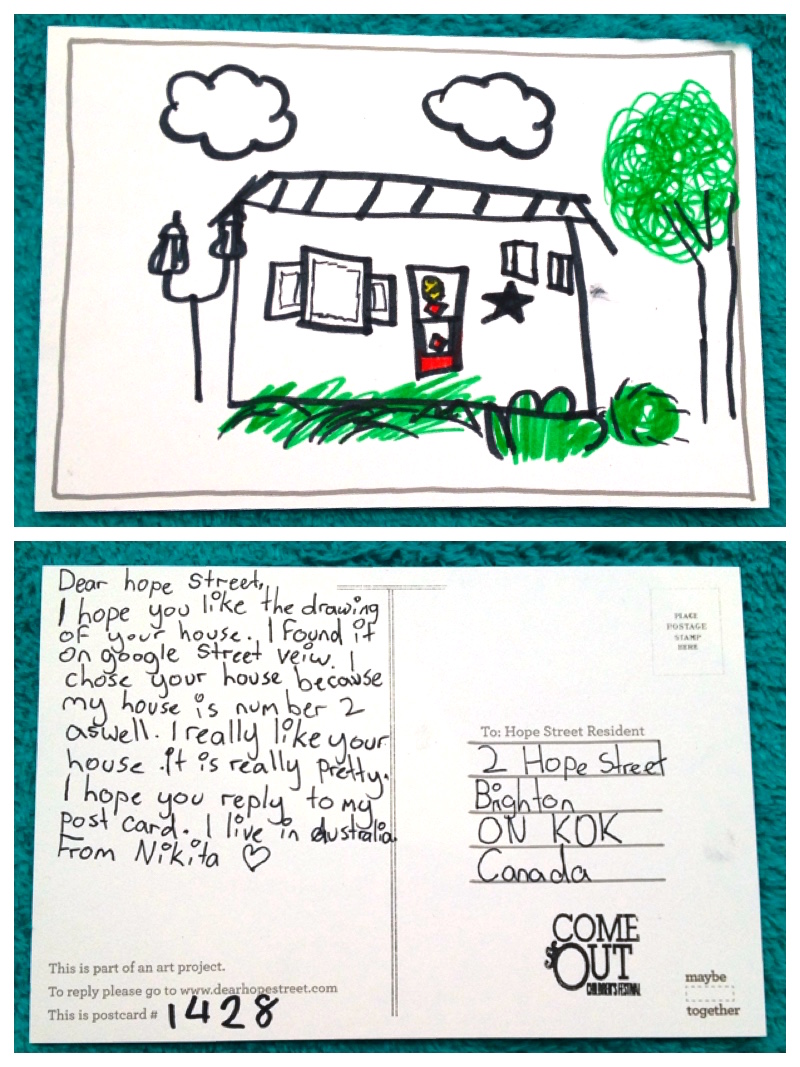 Dear hope Street,
I hope you like the drawing
of your house. I found it
on google Street veiw. I
chose your house because
my house is number 2
aswell. I really like your
house .it is really Pretty.
I hope you reply to my
post card. I live in australia
From Nikita ♡
This is part of an art project.
To reply please go to www.dearhopestreet.com
This is postcard # 1428
PLACE
POSTAGE
STAMP
HERE
To: Hope Street Resident
2 Hope Street
Brighton
ON KOK
Canada
COME
OUT
CHILDREN'S FESTIVAL
maybe
together